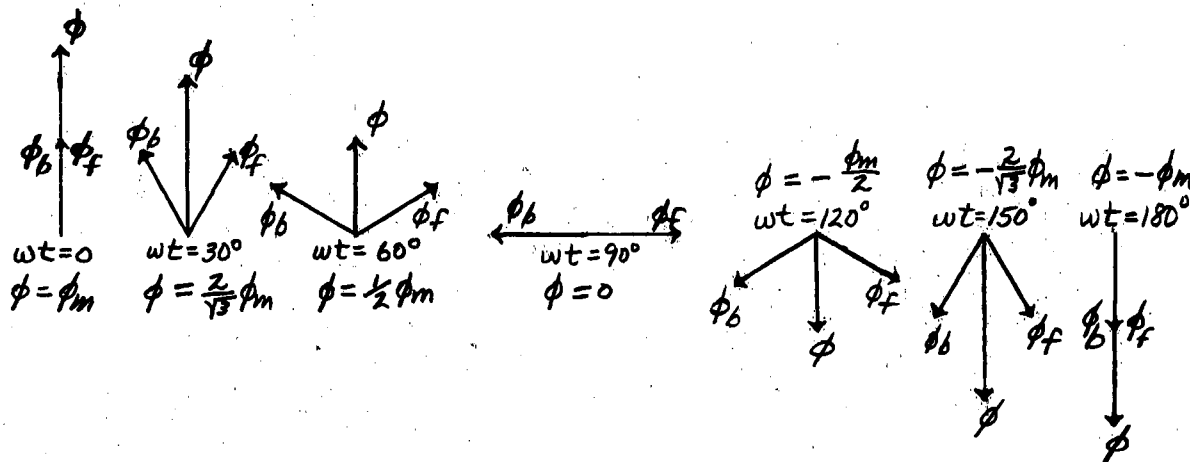 ϕ
ϕb ϕf
ωt=0
ϕ=ϕm
ϕ
ϕb ϕf
ωt=30°
ϕ = 2/√3 ϕm
ϕ
ϕb ϕf
ωt=60°
ϕ=1/2 ϕm
ϕb ϕf
ωt=90°
ϕ=0
ϕ = - ϕm/2
ωt=120°
ϕb ϕf
ϕ
ϕ=-2/√3 ϕm
ωt=150°
ϕb ϕf
ϕ
ϕ=-ϕm
ωt=180°
ϕb ϕf
ϕ